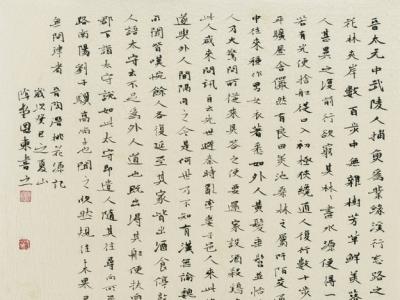 晉太元中武陵人捕魚為業緣溪行忘路之
花林夾岸數百步中無雜樹芳草鮮美落
人甚異之復前行欲窮其林〻盡水源便得一
若有光便捨船從口入初極狹纔通人復行數十步
平曠屋舍儼然有良田美池桑林之屬阡陌交
中往來種作男女衣著悉如外人黃髮垂髫並怡
人乃大驚問所從來具答之便要還家設酒殺雞
此人咸來問訊自云先世避秦時亂率妻子邑人來此
遂與外人間隔問今是何世乃不知有漢無論魏
所聞皆嘆惋餘人各復延至其家皆出酒食停數
人語太守云不足為外人道也既出得其船便扶向
郡下詣太守說如此太守即遣人隨其往尋向所
路南陽劉子驥高尚士也聞之欣然規往未果
無問津者 陶潛桃花源記
歲次癸巳之夏山
國東書之